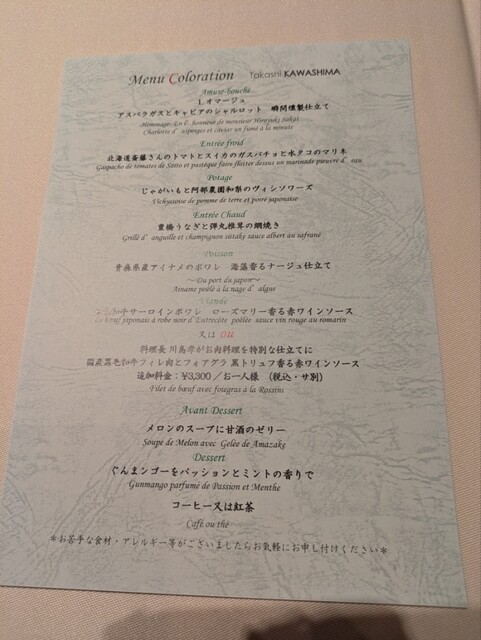 Menu Coloration Takashi KAWASHIMA
Amuse-bouche
1.オマージュ
アスパラガスとキャビアのシャルロット 瞬間燻製仕立て
Hommage En l' honneur de monsieur Hiroyuki Sakai
Charlotte d' asperges et caviar un fumé à la minute
Entrée froid
北海道斎藤さんのトマトとスイカのガスパチョと水タコのマリネ
Gaspacho de tomates de Saito et pasteque faire flotter dessus un marinade pieuvre d' eau
Potage
じゃがいもと阿部農園和梨のヴィシソワーズ
Vichyssoise de pomme de terre et poire japonaise
Entrée Chaud
豊橋うなぎと弾丸椎茸の網焼き
Grillé d' anguille et champignon siitaky sauce albert au safrané
Poisson
青森県産アイナメのポワレ 海藻香るナージュ仕立て
～Du port du japon～
Ainame poêlé à la nage d' algue
Viande
和牛サーロインポワレ ローズマリー香る赤ワインソース
bœuf japonais à robe noir d'Entrecôte poêlée sauce vin rouge au romarin
又は ou
料理長 川島孝がお肉料理を特別な仕立てに
国産黒毛和牛フィレ肉とフォアグラ 黒トリュフ香る赤ワインソース
追加料金：¥3,300／お一人様 （税込・サ別）
Filet de bœuf avec foiegras à la Rossini
Avant Dessert
メロンのスープに甘酒のゼリー
Soupe de Melon avec Gelée de Amazake
Dessert
ぐんまンゴーをパッションとミントの香りで
Gunmango parfumé de Passion et Menthe
コーヒー又は紅茶
Café ou thé
＊お苦手な食材・アレルギー等がございましたらお気軽にお申し付けください＊